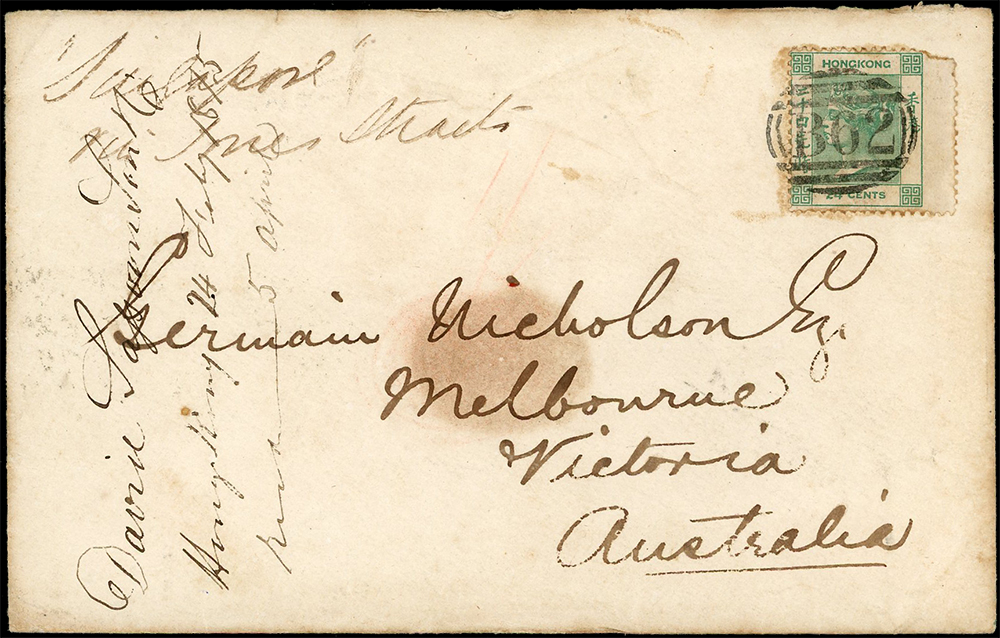 "Singapore"
via Torres Straits
HONGKONG
香港
B62
24 CENTS
Germain Nicholson Esq
Melbourne
Victoria
Australia
David
Hong Kong 24 Feby
5 april